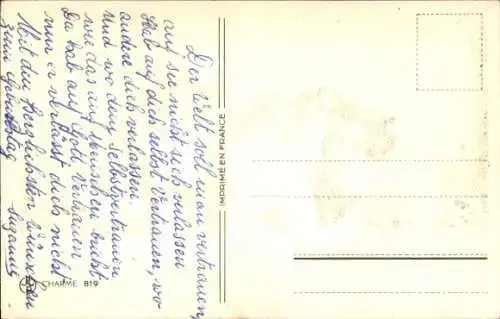 Der Welt soll man vertrauen,
auf sie nicht sich verlassen
Hab auf dich selbst Vertrauen, wo
andere dich verlassen.
Und wo dein Selbstvertrauen
wie das auf Menschen bricht
Da hab auf Gott Vertrauen
nur er verlässt dich nicht
Mit den herzlichsten Wünschen
zum Geburtstag
IMPRIMÉ EN FRANCE
CHARME 819